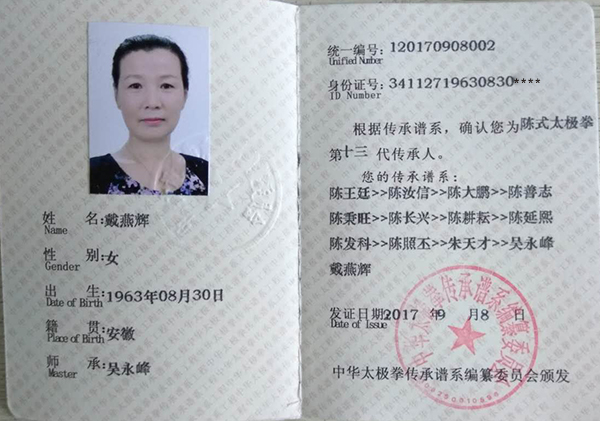 姓 名:戴燕辉
Name
性 别:女
Gender
出 生:1963年08月30日
Date of Birth
籍 贯:安徽
Place of Birth
师 承:吴永峰
Master
统一编号:120170908002
Unified Number
身份证号:34112719630830****
ID Number
根据传承谱系,确认您为陈式太极拳
第十三 代传承人。
您的传承谱系:
陈王廷>>陈汝信>>陈大鹏>>陈善志
陈秉旺>>陈长兴>>陈耕耘>>陈延熙
陈发科>>陈照丕>>朱天才>>吴永峰
戴燕辉
发证日期:2017 年 9 月 8 日
Date of Issue
中华太极拳传承谱系编纂委员会
中华太极拳传承谱系编纂委员会颁发